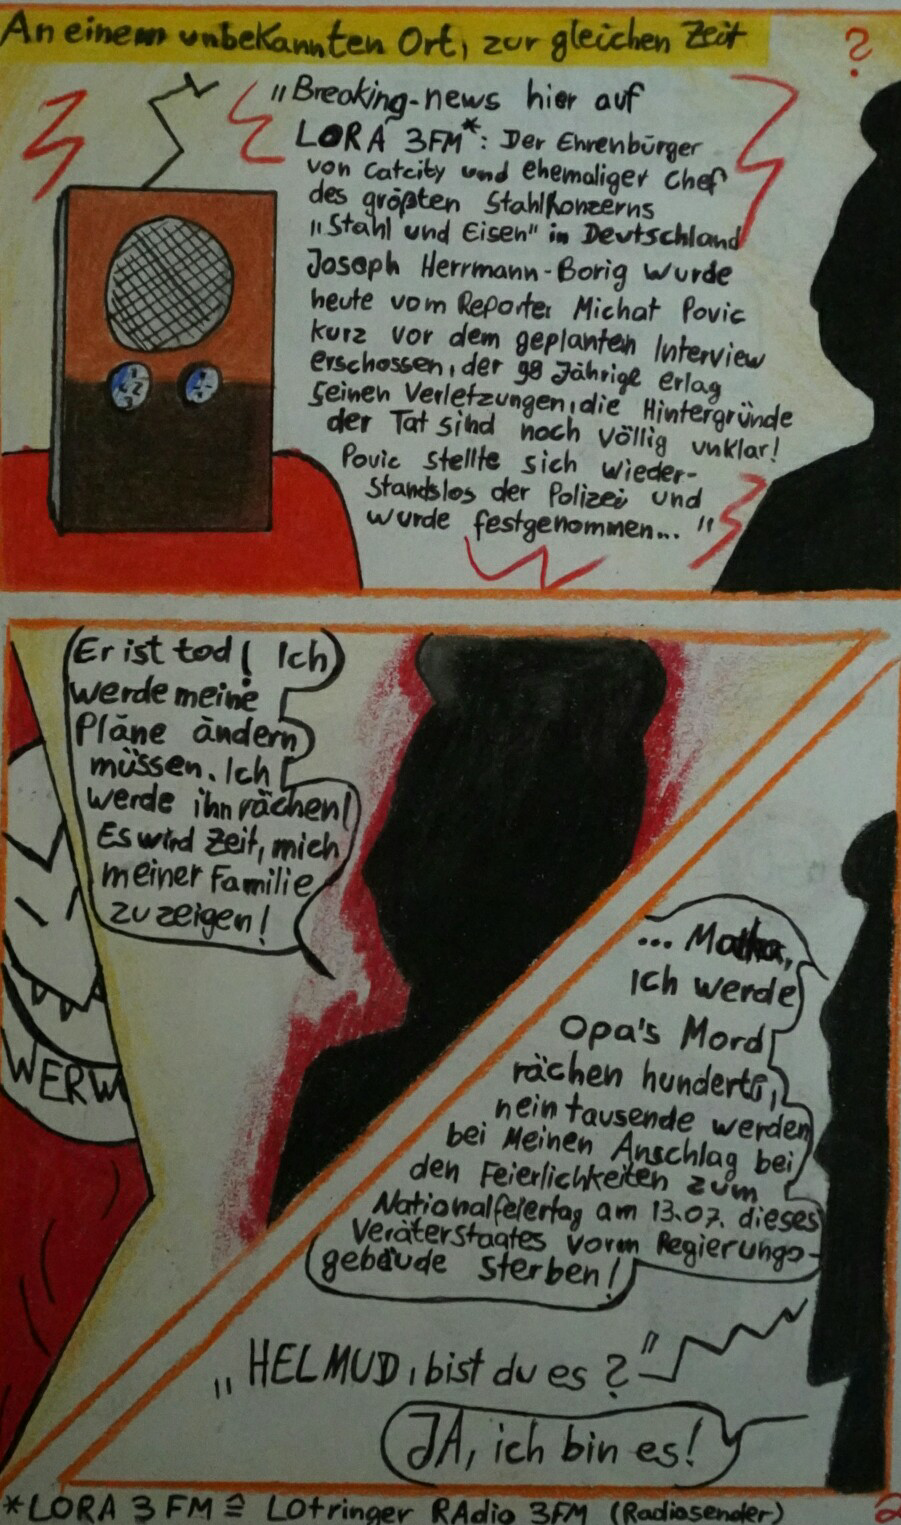 An einem unbekannten Ort, zur gleichen Zeit
?
„Breaking-news hier auf
LORA 3FM*: Der Ehrenbürger
von Catcity und ehemaliger Chef
des größten Stahlkonzerns
„Stahl und Eisen" in Deutschland
Joseph Herrmann-Borig wurde
heute vom Reporter Michat Povic
kurz vor dem geplanten Interview
erschossen, der 98 Jährige erlag
seinen Verletzungen, die Hintergründe
der Tat sind noch völlig unklar!
Povic stellte sich wieder-
standslos der Polizei und
wurde festgenommen... "
Er ist tod! Ich
werde meine
Pläne ändern
müssen. Ich
werde ihn rächen!
Es wird Zeit, mich
meiner Familie
zu zeigen!
WERW
...
ich werde
Opa's Mord
rächen hunderte,
nein tausende werden
bei Meinen Anschlag bei
den Feierlichkeiten zum
Nationalfeiertag am 13.07. dieses
Veräterstaates vorm Regierungs-
gebäude sterben!
„HELMUD, bist du es?"
JA, ich bin es!
*LORA 3 FM ≙ LOtringer RAdio 3FM (Radiosender)
2